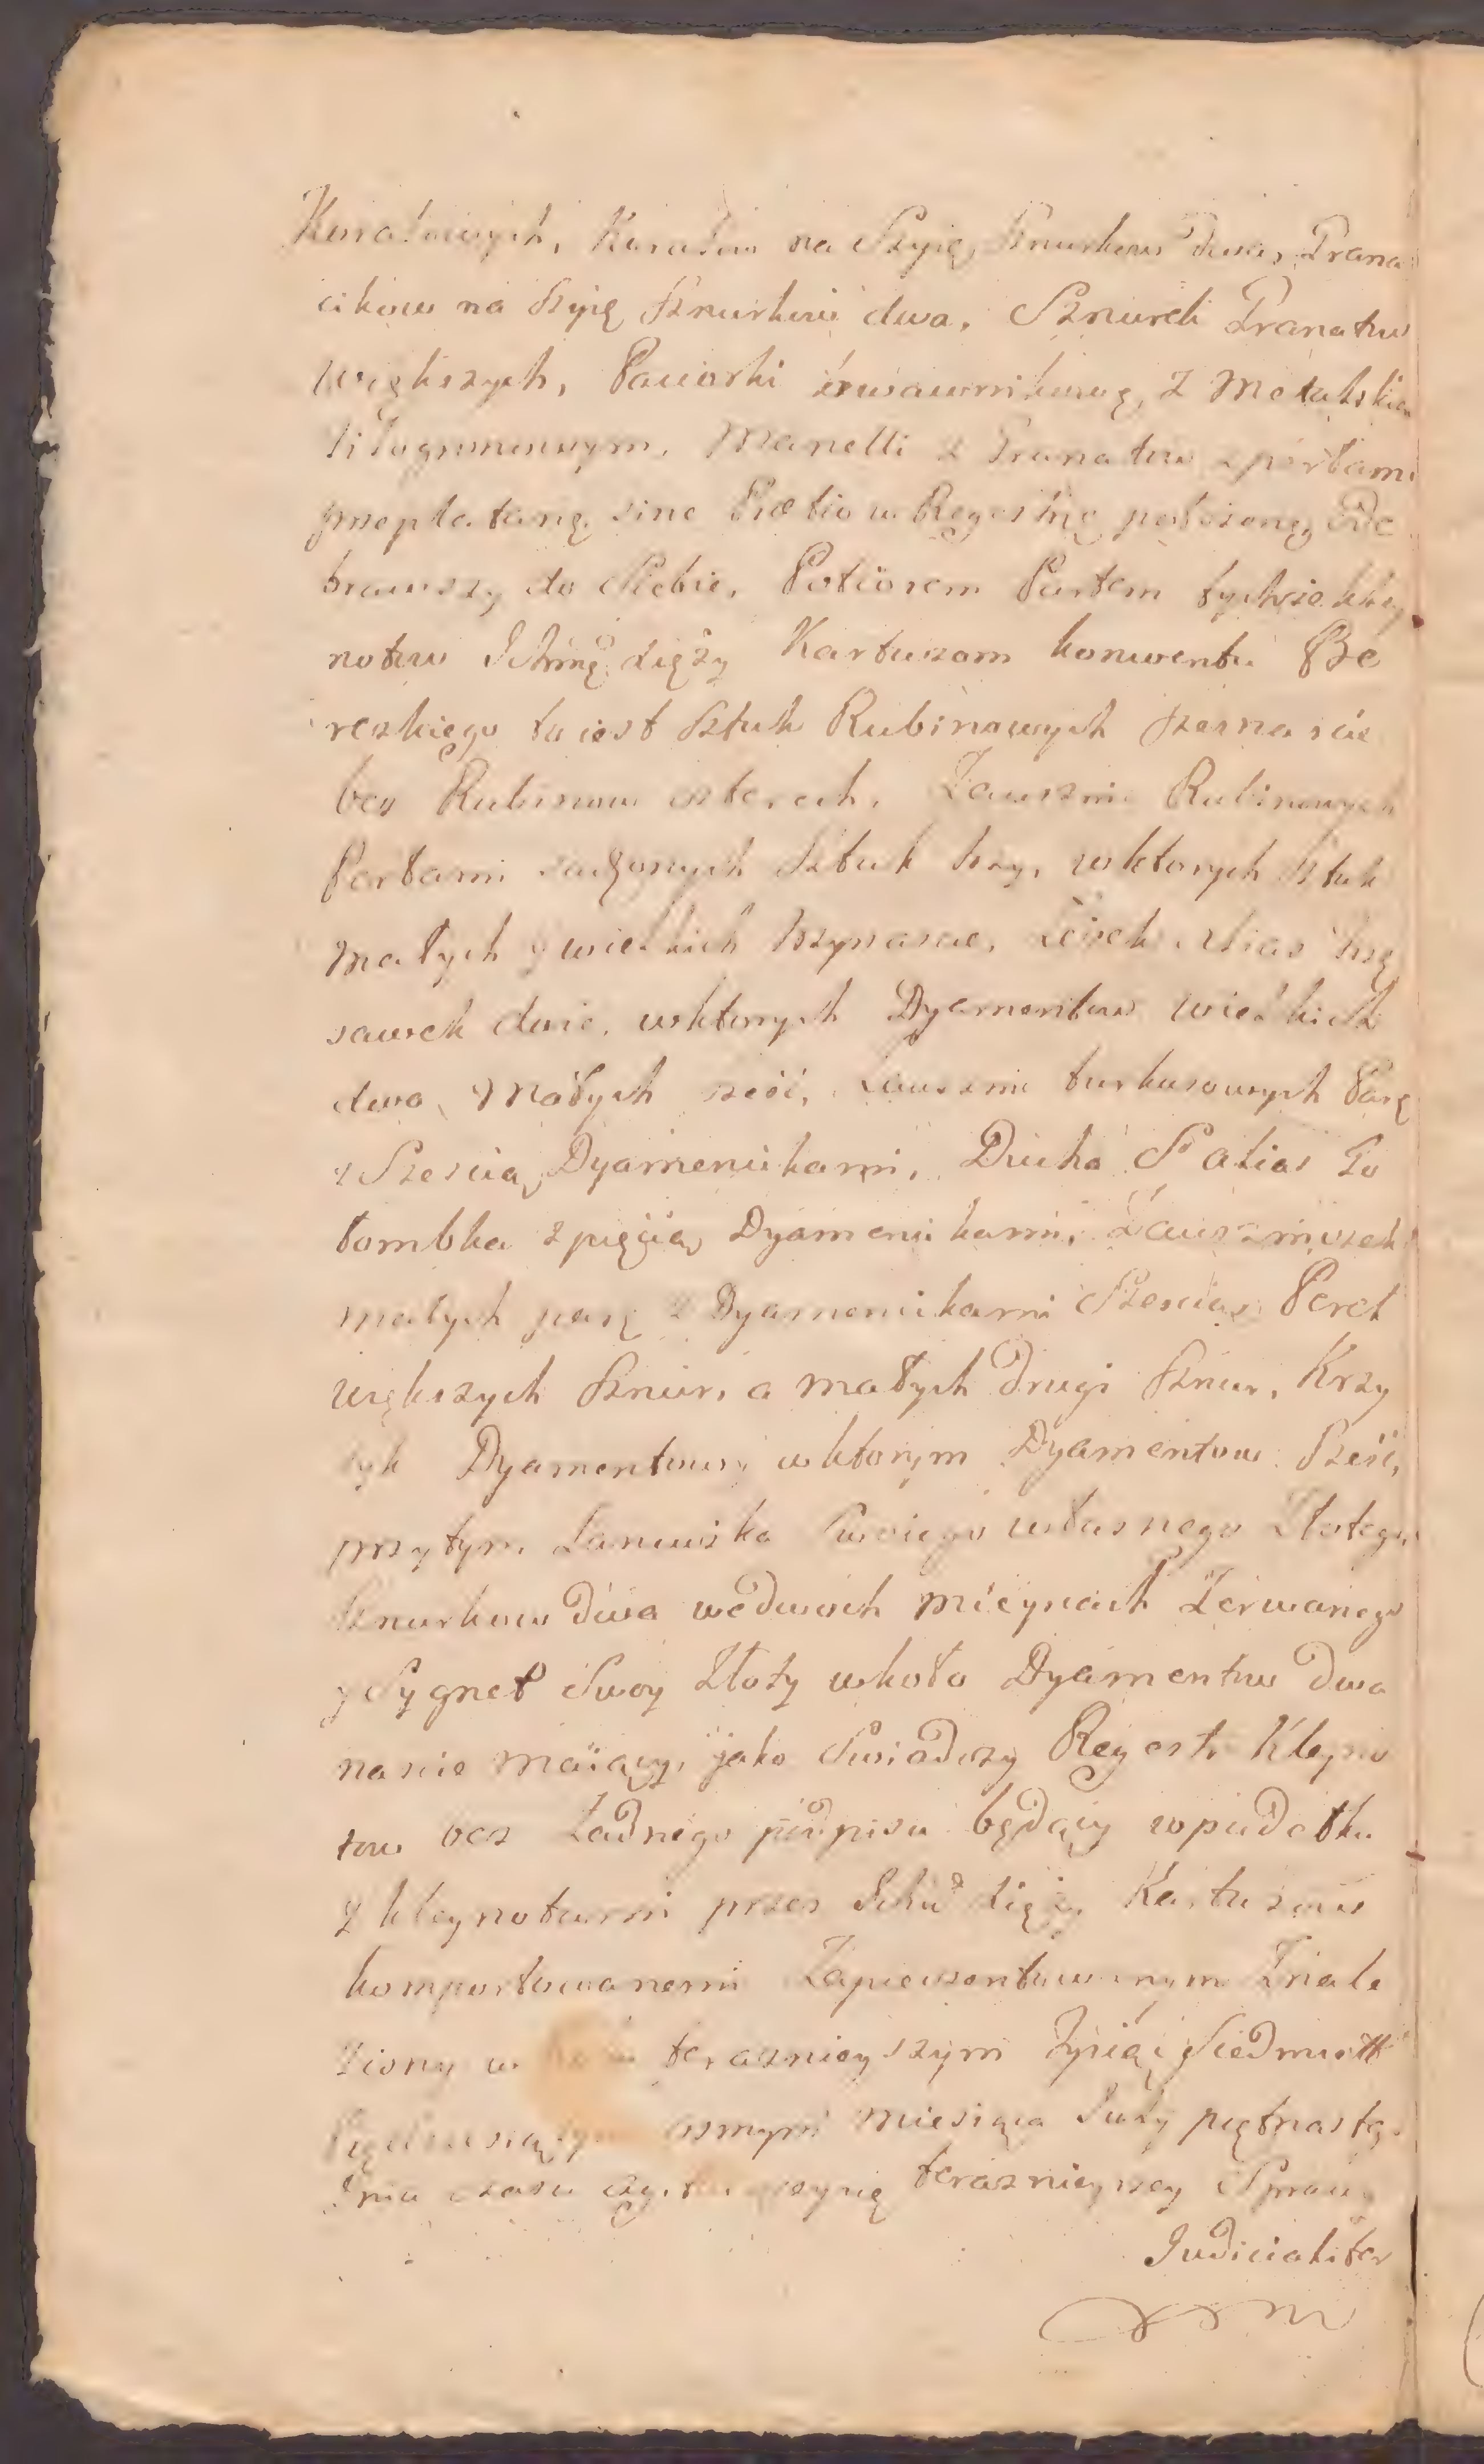 Koralowych, Koralow na Szyię Sznurkow dwa, Grana
cikow na szyię sznurkow dwa, Sznurek Granatow
większych, Paciorki
Manelli z Granatow z perłami
przeplataną, sine Prætio w Regestrze położoną, Ode
brawszy do Siebie, Potiorem Partem tychże kley
notow Ichmę dięży Kartuzom konwentu Be
reskiego to iest sztuk Rubinowych szesnascie
bez Rubinow czterech, Zausznic Rubinowych
Perłami sadzonych Sztuk trzy, w ktorych sztuk
małych y wielkich trzynascie, alias trzę
sawek dwie, w ktorych Dyamentow wielkich
dwa, Małych sześć, Zausznic turkusowych Parę
z Szescią Dyamencikami, Ducha S° alias Go
łombka z pięcią Dyamencikami, Zauszniczek
małych parę z Dyamencikami Szescią, Pereł
większych sznur, a małych drugi sznur, Krzy
zyk Dyamentowy w ktorym Dyamentow sześć,
przytym Lancuszka Swoiego własnego Złotego
sznurkow dwa we dwuch mieyscach Zerwanego
y Sygnet Swoy Złoty wkoło Dyamentow dwa
nascie maiący, jako Swiadczy Regestr Kleyno
tow bez Żadnego podpisu będący w pudełku
z kleynotami przez Ichm dięży Kartuzow
komportowanemi Zaprezentowanym Znale
ziony w Roku teraznieyszym Tysiąc Siedmset
Pięćdziesiątym osmym miesiąca July piętnastego
Dnia czasu teraznieyszey Sprawy
Judicialiter